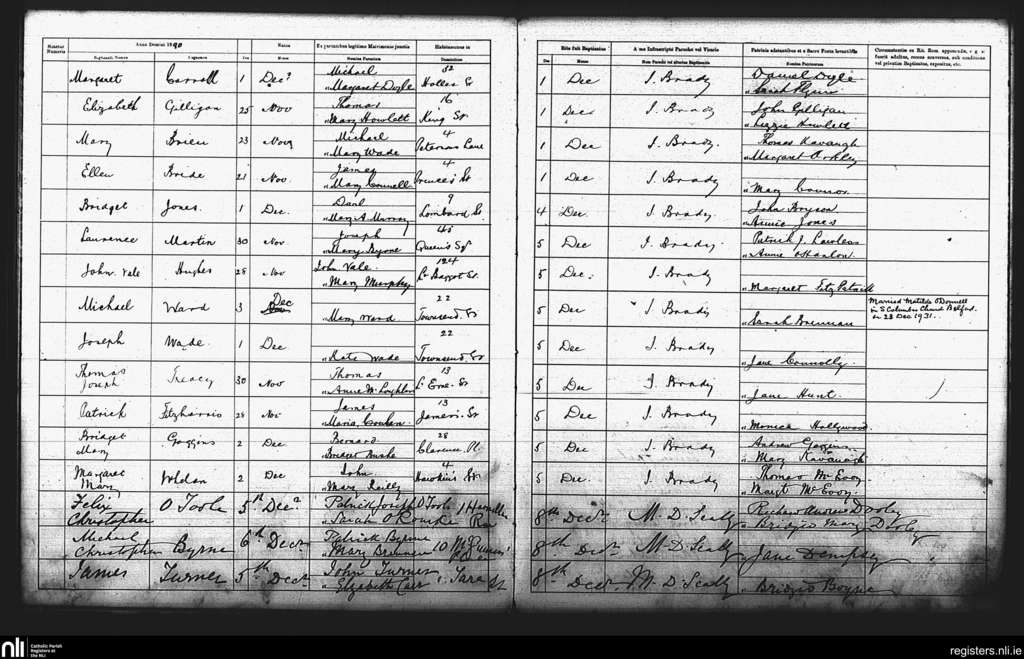 Anno Domini 1890
Cognomen
Die
Mense
Ex parentibus legitimo Matrimonio junctis
Nomina Parentum
Habitantibus in
Rite fuit Baptizatus
Die
Mense
A me Infrascripto Parocho vel Vicario
Patrinis adstantibus et a Sacro Fonte levantibus
Nomina Patrinorum
Margaret Carroll 1 Dec Michael 32 1 Dec J. Brady Daniel Doyle
" Margaret Doyle Holles St " Sarah Flynn
Elizabeth Gilligan 25 Nov Thomas 16 1 Dec J. Brady John Gilligan
" Mary Howlett King St " Lizzie Howlett
Mary Brien 23 Nov Michael 4 1 Dec J. Brady. Thomas Kavanagh
" Mary Wade Petersons Lane " Margaret
Ellen Bride 21 Nov. James 4 1 Dec J. Brady
" Mary Connell Princes St " Mary Connor
Bridget Jones. 1 Dec. 9 4 Dec J. Brady John Bryson
" Mary A. Murray Lombard St " Annie Jones
Laurence Martin 30 Nov Joseph 45 5 Dec J. Brady. Patrick J. Lawless
" Mary Byrne Queen's Sq " Anne OHanlon
John Vale Hughes 28 Nov John Vale. 124 5 Dec. J. Brady
" Mary Murphy Lr Baggot St. " Margaret FitzPatrick
Michael Ward 3 Dec 22 5 Dec. J. Brady Married Matilda O'Donnell
" Mary Ward Townsend St " Sarah Brennan in S Columbs Church Belfast.
on 23 Dec 1931..
Joseph Wade. 1 Dec 22 5 Dec J. Brady
" Kate Wade Townsend St " Jane Connolly.
Thomas Joseph Treacy 30 Nov Thomas 13 5 Dec J. Brady
" Anne McLoghlen Lr Erne St " Jane Hunt.
Patrick Fitzharris 28 Nov James 13 5 Dec J. Brady
" Maria James's St " Monica Hollywood
Bridget Mary Goggins 2 Dec Bernard 28 5 Dec J. Brady Andrew Goggins
Bridget Clarence Pl. " Mary Kavanagh
Margaret Mary Weldon 2 Dec John 4 5 Dec. J. Brady Thomas McEvoy
" Mary Reilly Hawkins St " Margt McEvoy.
Felix Christopher O Toole 5th Decr Patrick Joseph O'Toole 1 Hamilton Row 8th Decr M. D. Scally Dooly
" Sarah O'Rourke " Bridget Mary Dooly
Michael Christopher Byrne 6th Decr Patrick Byrne 8th Decr M. D. Scally
" Mary Brennan 10 " Jane Dempsey
James Turner 5th Decr John Turner 8th Decr M. D. Scally
" Elizabeth Carr Tara St " Bridgid Boyne
nli
Catholic Parish
Registers at
the NLI
registers.nli.ie